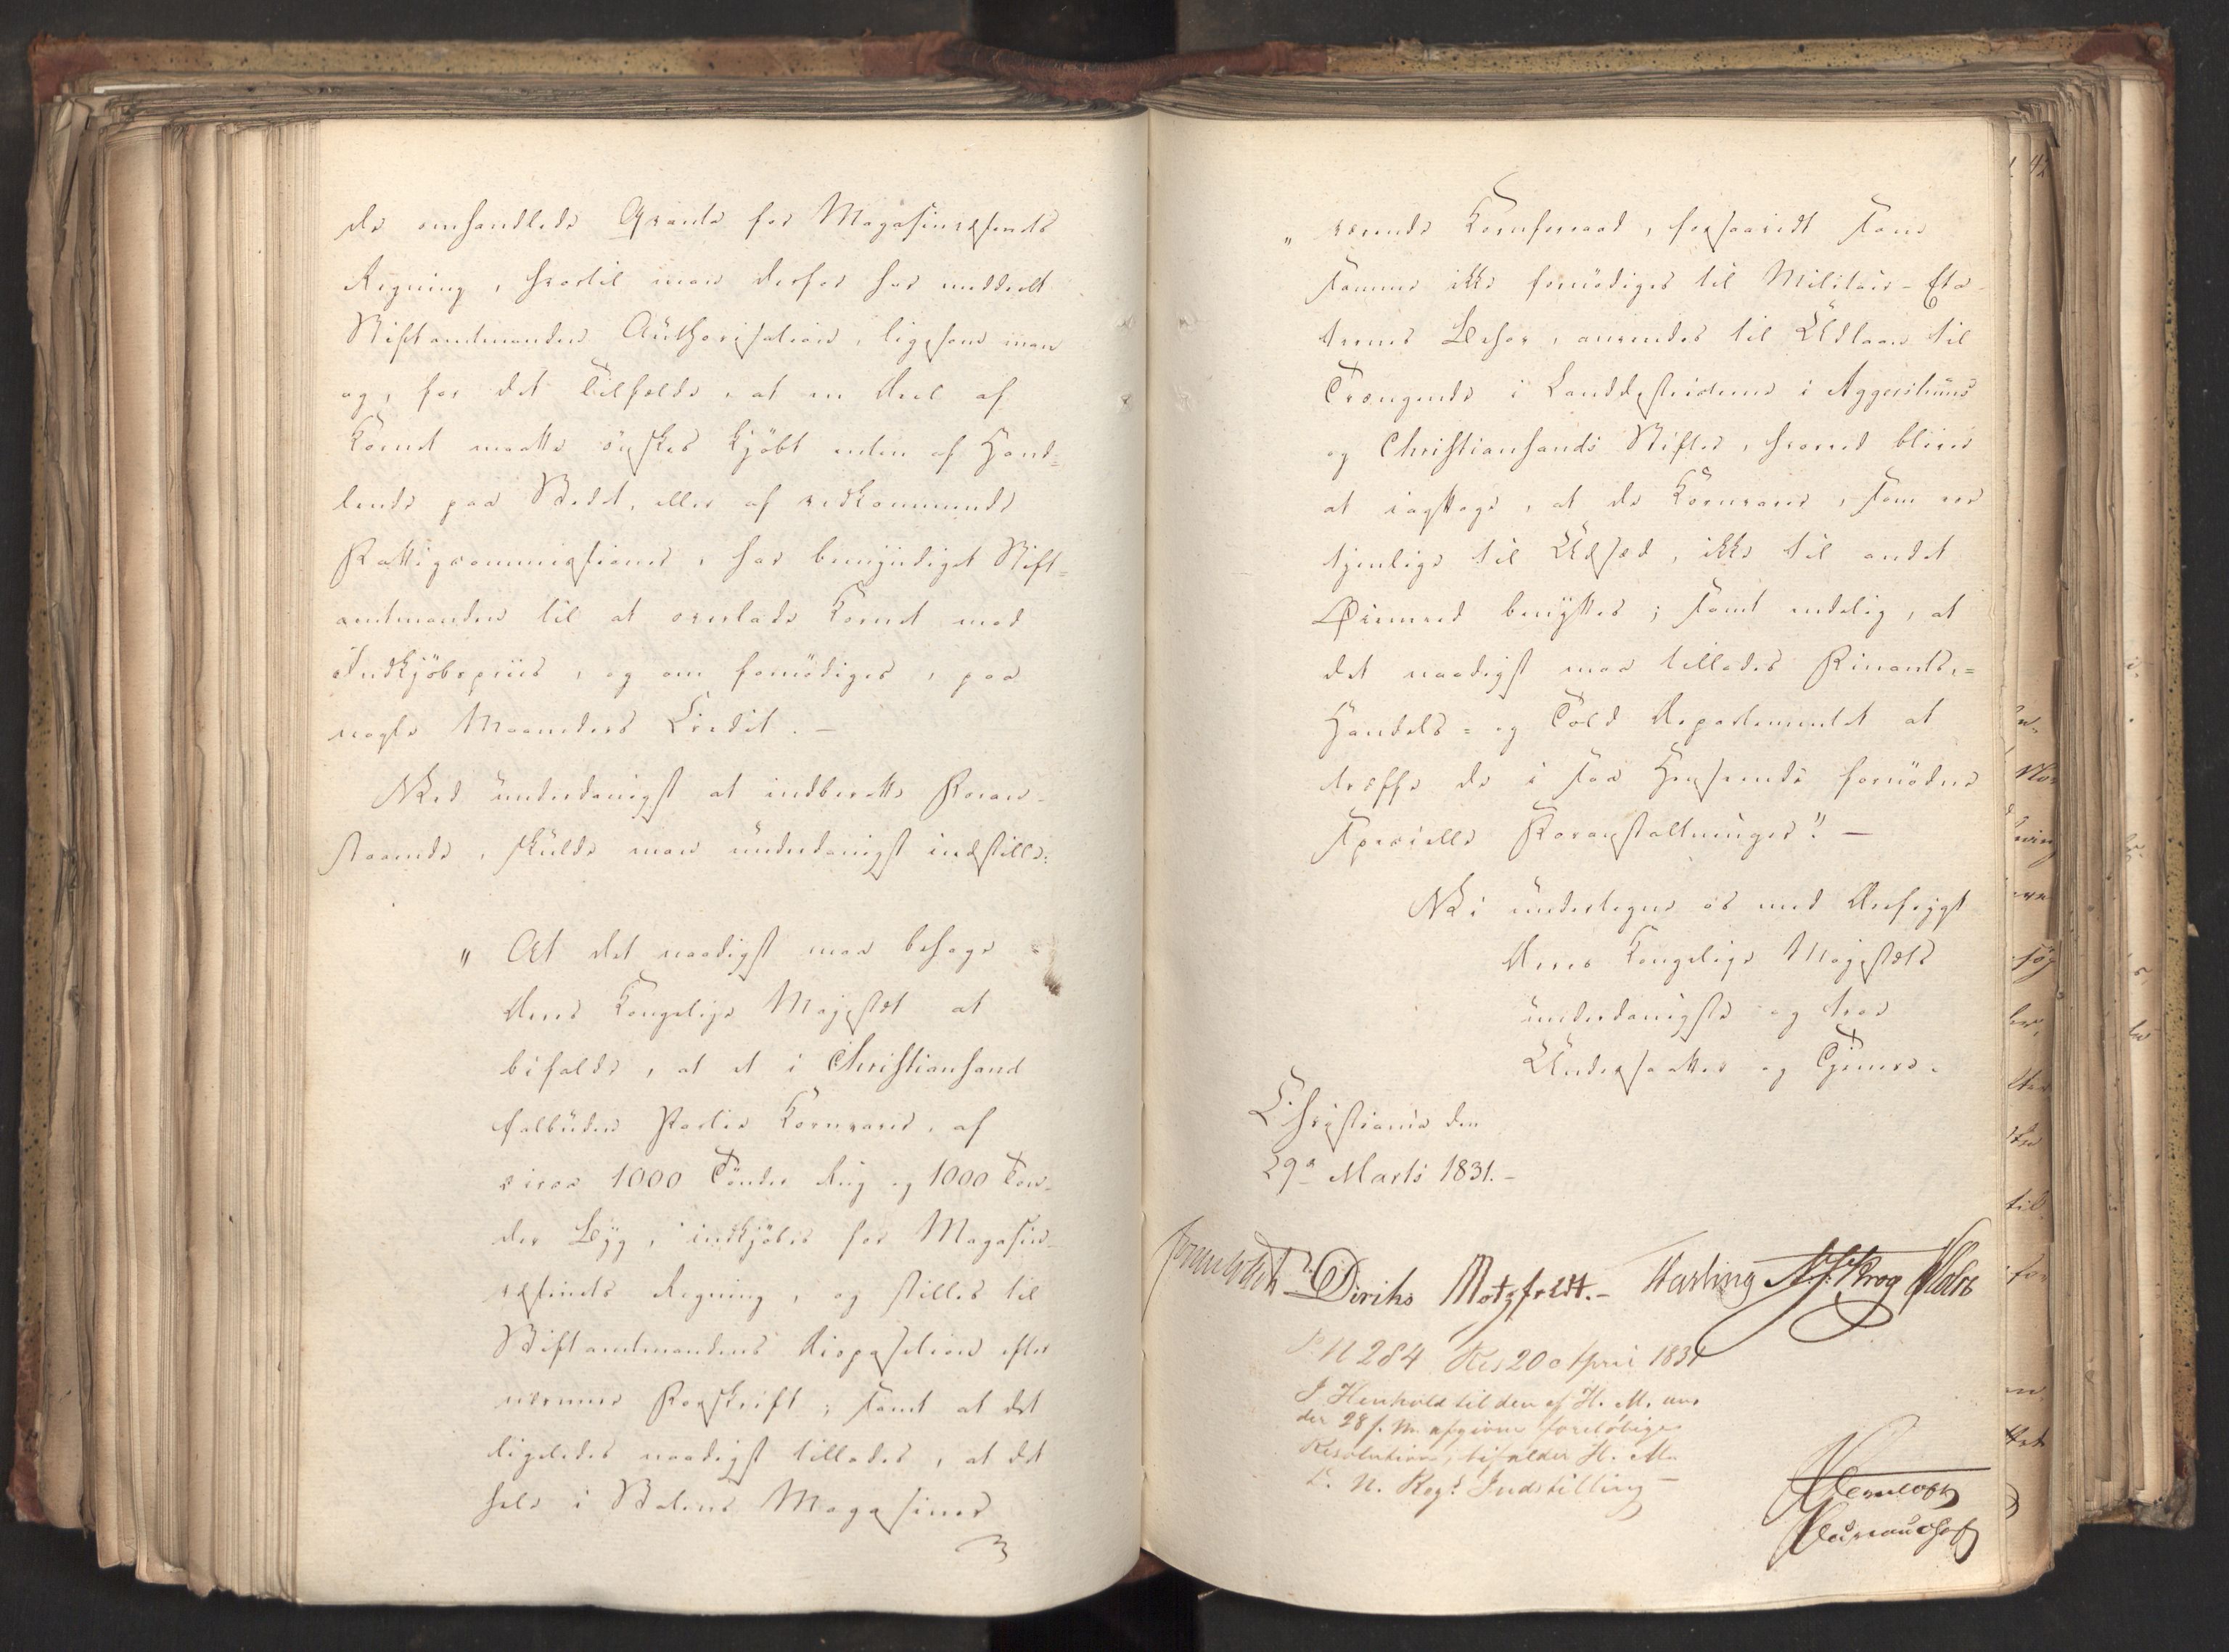 de omhandlede Qvanta for Magasinvæsenets
Regning, hvortil man derfor har meddeelt
Stiftamtmanden Authorisation, ligesom man
og, for det Tilfælde, at en Deel af
Kornet maatte önskes kjöbt enten af Hand=
lende paa Stedet, eller af vedkommende
Fattigcommissioner, har bemyndiget Stift=
amtmanden til at overlade Kornet mod
Indkjöbspriis, og om fornödiges, paa
nogle Maaneders Credit. –
Ved underdanigst at indberette Foran-
staaende, skulde man underdanigst indstille:
„ At det naadigst maa behage
Deres Kongelige Majestæt at
bifalde, at et i Christiansand
falbuden Partie Kornvarer, af
circa 1000 Tönder Rug og 1000 Tön-
der Byg, indkjöbes for Magasin-
væsenets Regning, og stilles til
Stiftamtmandens Disposition efter
nærmere Forskrift; samt at det
ligeledes naadigst tillades, at det
hele i Statens Magasiner
„ værende Kornforraad, forsaavidt som
samme ikke fornödiges til Militair-Eta-
ternes Behov, anvendes til Udlaan til
Trængende i Landdistricterne i Aggershuus
og Christiansands Stifter, hvorved bliver
at iagttage, at de Kornvarer, som ere
tjenlige til Udsæd, ikke til andet
Øiemed benyttes; samt endelig, at
det naadigst maa tillades Finants-=
Handels= og Told Departementet at
træffe de i saa Henseende fornödne
specielle Foranstaltninger". –
Vi undertegne os med Dybfrygt
Deres Kongelige Majestæts
underdanigste og troe
Undersaatter og Tjenere.
Christiania den
29de Marts 1831. –
Diriks Motzfeldt. – Harling Krog
No 284 Res 20 April 1831
I Henhold til den af H. M. un-
der 28 f. M. afgivne foreløbige
Resolution, bifalder H. M.
D. N. Regs Indstilling –